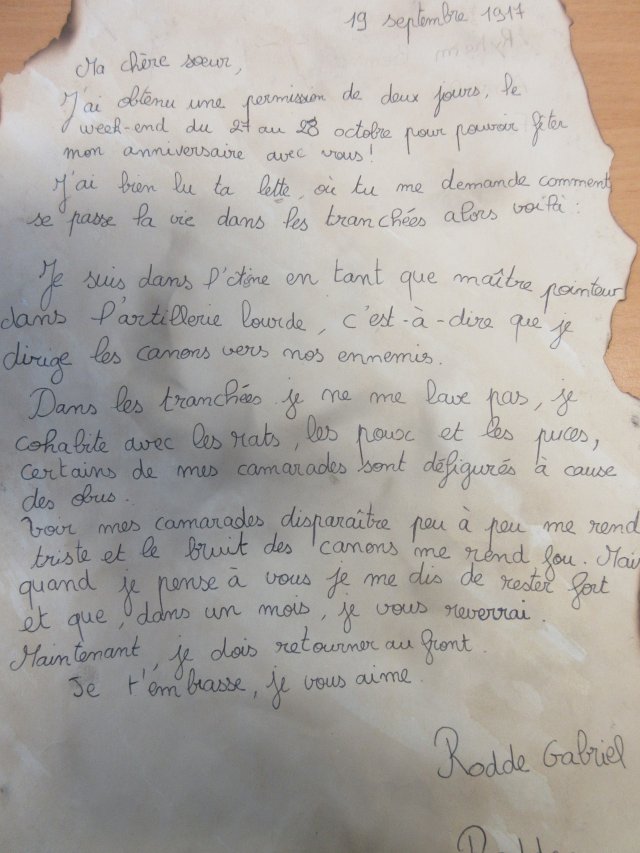 19 septembre 1917
Ma chère sœur,
J'ai obtenu une permission de deux jours, le
week-end du 27 au 28 octobre pour pouvoir fêter
mon anniversaire avec vous!
J'ai bien lu ta lette, où tu me demande comment
se passe la vie dans les tranchées alors voilà :
Je suis dans l' en tant que maître pointeur
dans l'artillerie lourde, c'est-à-dire que je
dirige les canons vers nos ennemis.
Dans les tranchées je ne me lave pas, je
cohabite avec les rats, les poux et les puces,
certains de mes camarades sont défigurés à cause
des obus.
Voir mes camarades disparaître peu à peu me rend
triste et le bruit des canons me rend fou. Mai
quand je pense à vous je me dis de rester fort
et que, dans un mois, je vous reverrai.
Maintenant, je dois retourner au front.
Je t'embrasse, je vous aime.
Rodde Gabriel